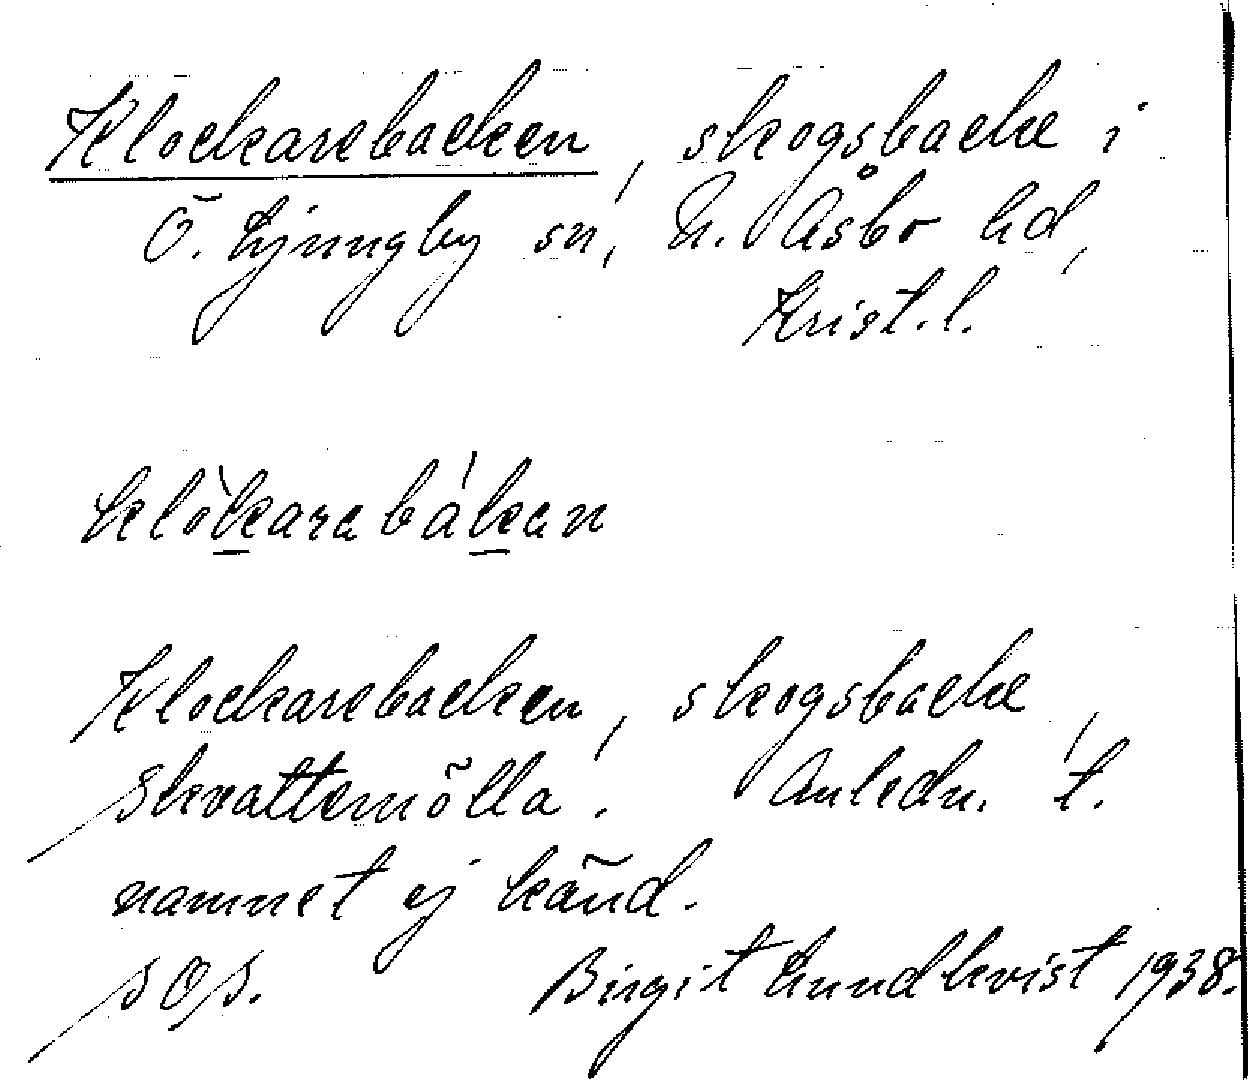 Klockarebacken, skogsbacke i
Ö. Ljungby sn, N. Åsbo hd,
Krist. l.
klòkarabákan
Klockarebacken, skogsbacke,
Skvattemölla. Anledn. t.
namnet ej känd.
SOS. Birgit Lundkvist 1938.